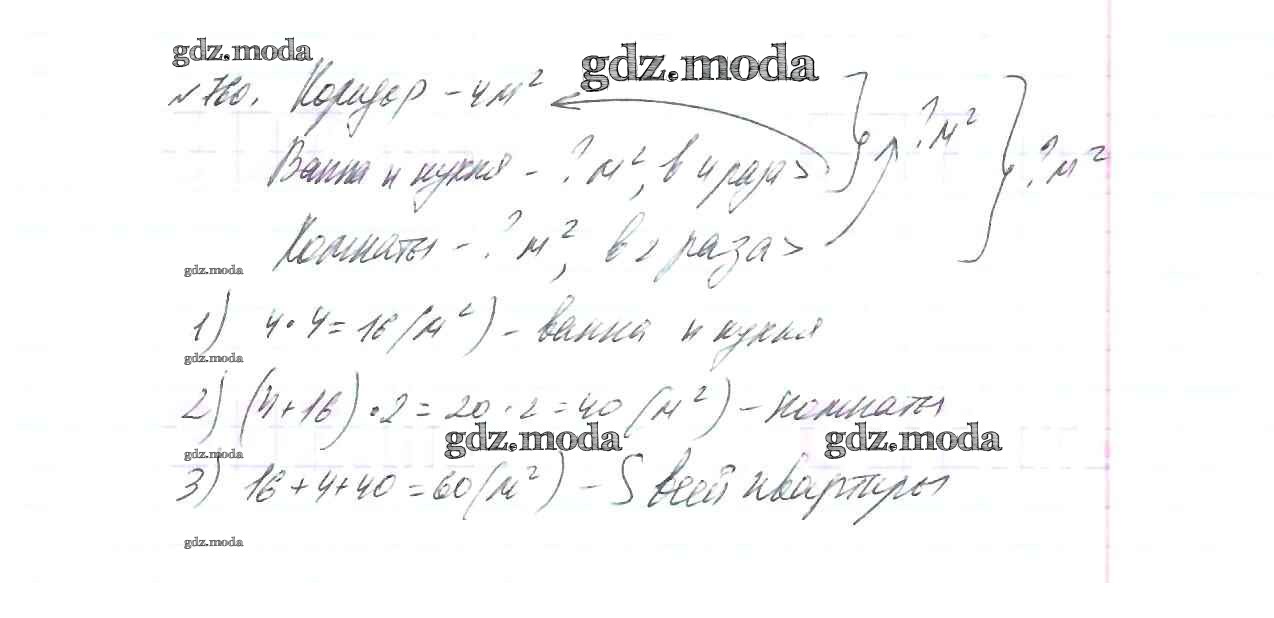 gdz.moda
gdz.moda
№760. Коридор - 4 м²
?м²
?м²
Ванна и кухня - ? м², в 4 раза >
Комнаты - ? м², в 2 раза >
gdz.moda
1) 4·4=16 (м²) - ванна и кухня
gdz.moda
2) (4+16)·2=20·2=40 (м²) - комнаты
gdz.moda
gdz.moda
gdz.moda
3) 16+4+40=60 (м²) - S всей квартиры
gdz.moda